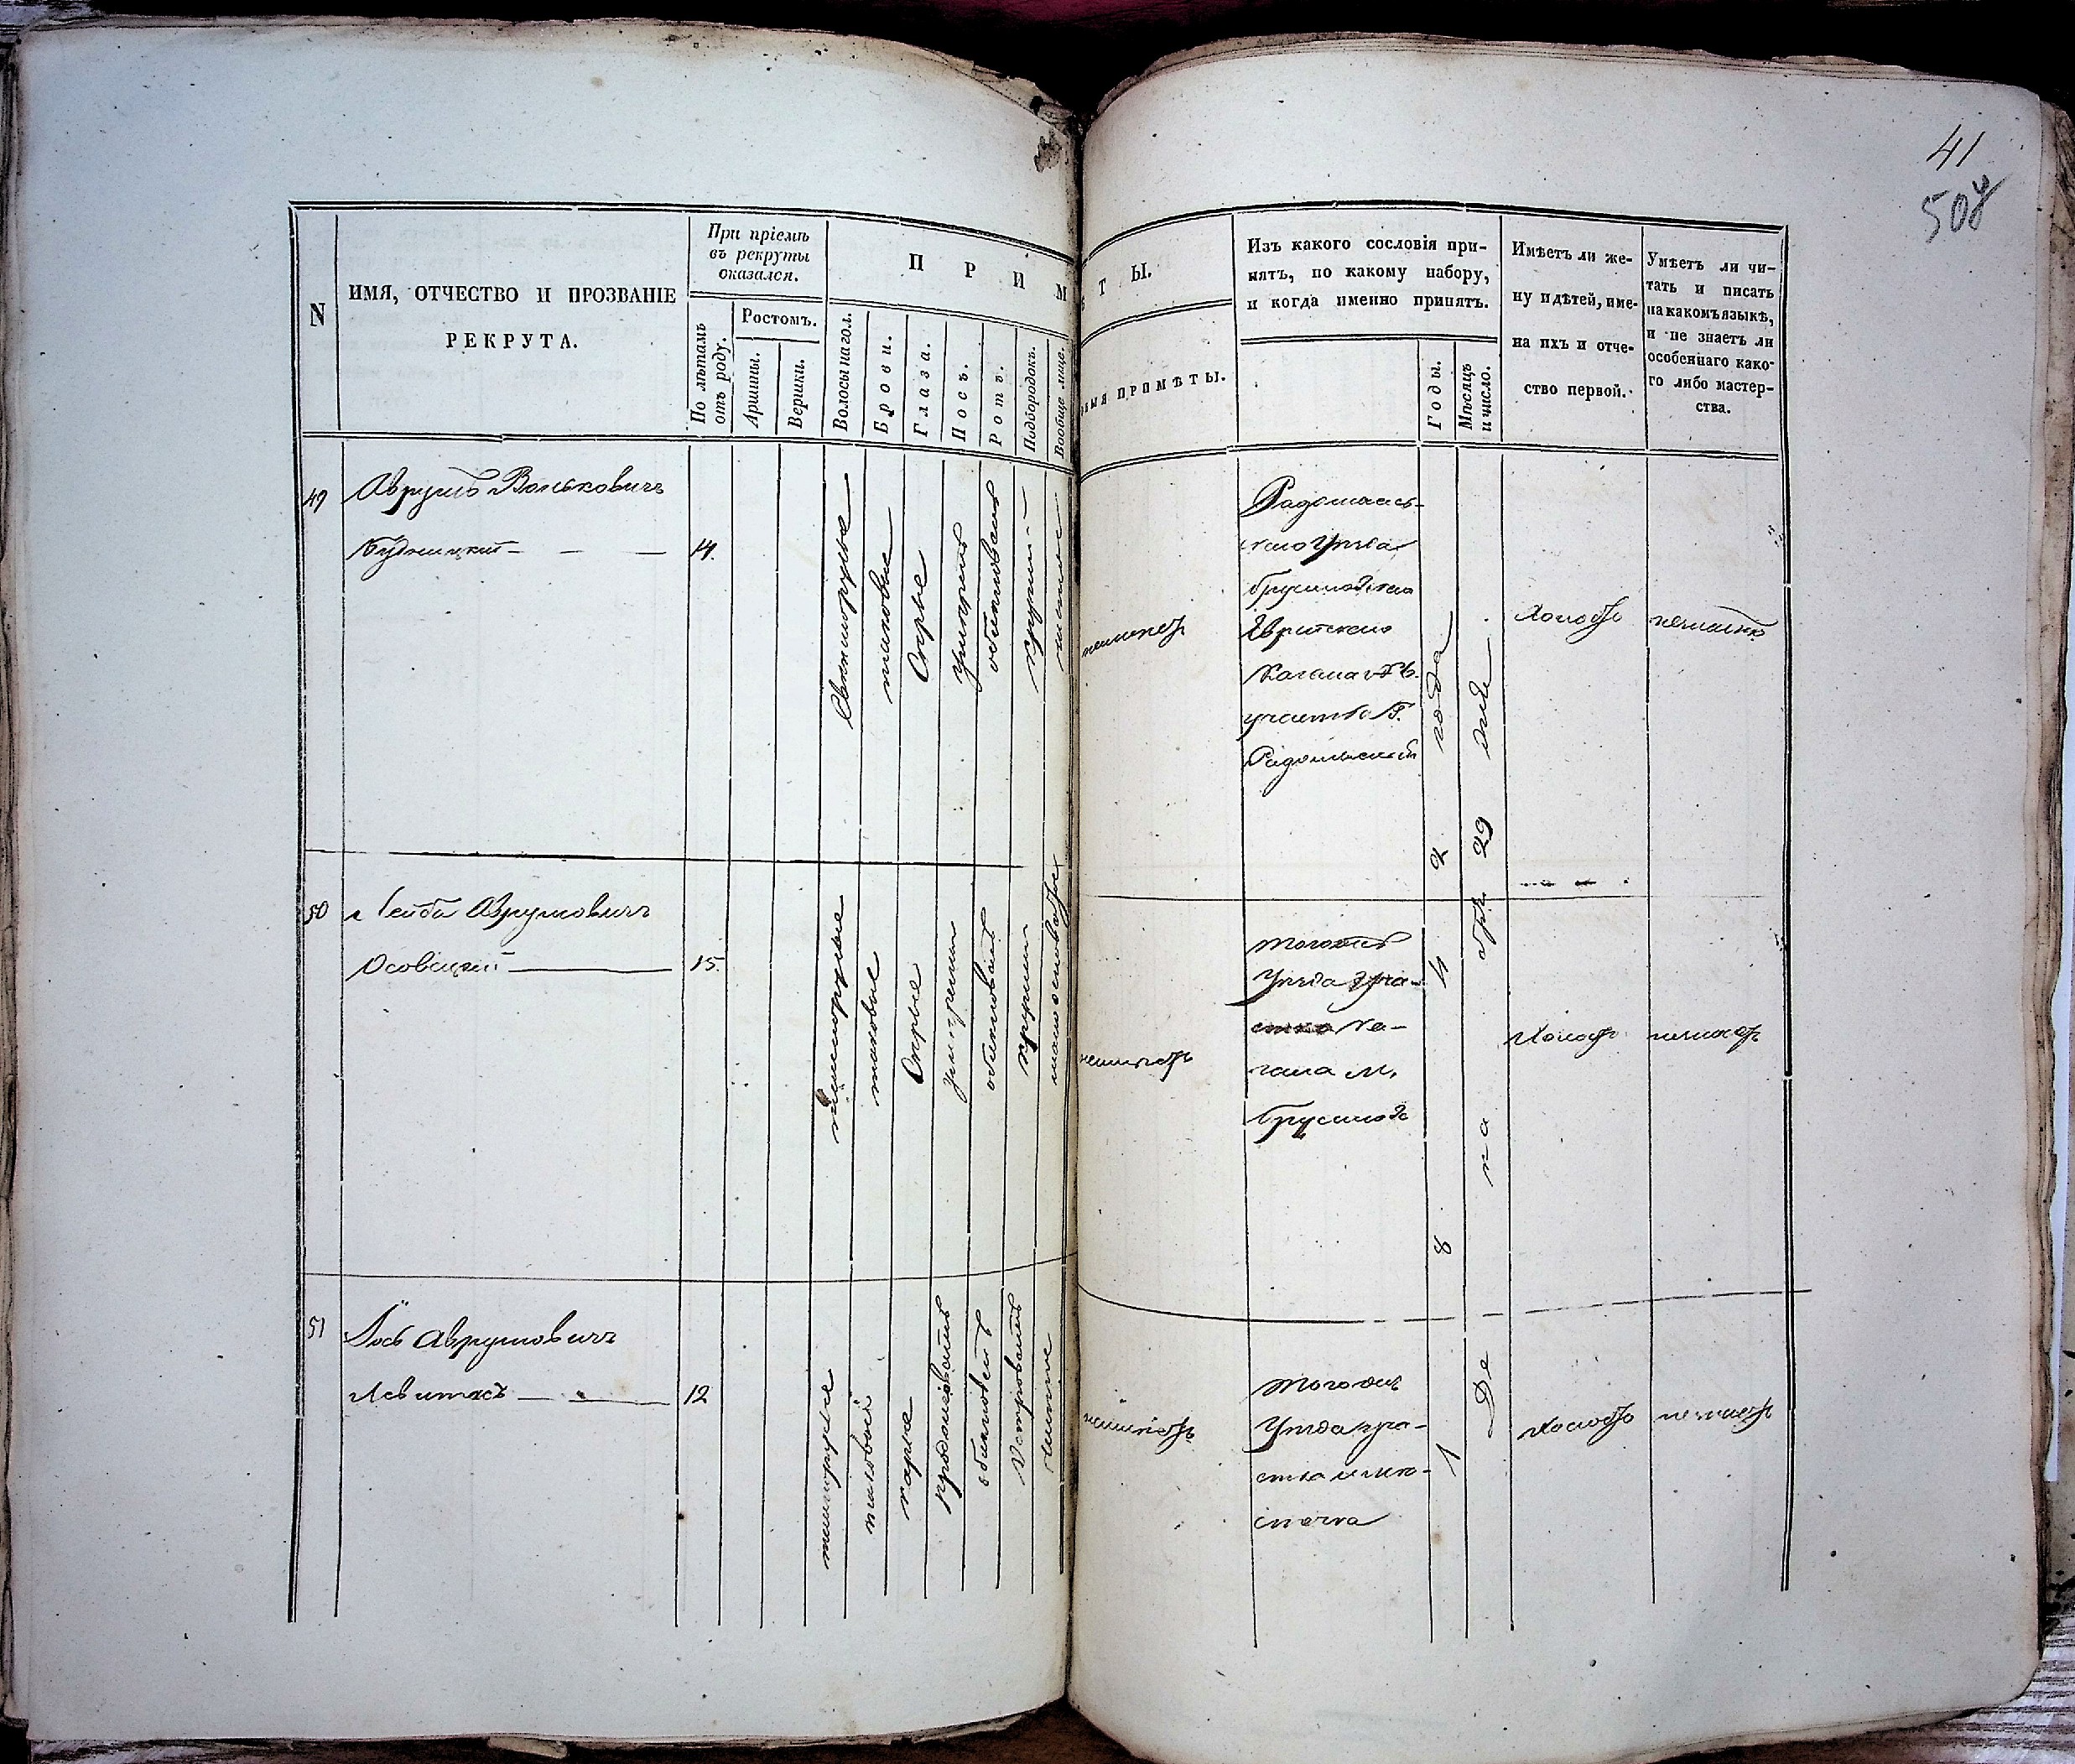 41
508
N
ИМЯ, ОТЧЕСТВО И ПРОЗВАНІЕ
РЕКРУТА.
При пріемѣ
въ рекруты
оказался.
По лѣтамъ
отъ роду.
Ростомъ.
Аршины.
Вершки.
П Р И М
Волосы на гол.
Брови.
Глаза.
Носъ.
Ротъ.
Подбородокъ.
Вообще лице.
Ѣ Т Ы.
ПРИМѢТЫ.
Изъ какого сословія при-
нятъ, по какому набору,
и когда именно принятъ.
Годы.
Мѣсяцъ
и число.
Имѣетъ ли же-
ну и дѣтей, име-
на ихъ и отче-
ство первой.
Умѣетъ ли чи-
тать и писать
на какомъ языкѣ,
и не знаетъ ли
особеннаго како-
го либо мастер-
ства.
49
Аврумъ Вольковичъ
Будницкій
14.
Свѣтлорусые
таковые
Сѣрые
умѣрен
обыкновен
круглый
чистое
неимѣетъ
Радомысль-
скаго Уѣзда
Брусиловскаго
Еврейскаго
Кагала
участка
Радомысльскій
Холостъ
неумѣетъ
50
Лейба Аврумовичъ
Осовскій
15.
темнорусые
таковые
Сѣрые
умѣренный
обыкновен
круглый
неимѣетъ
тогожъ
Уѣзда уча-
стка Ка-
гала м.
Брусилова
Холостъ
неумѣетъ
51
Іось Аврумовичъ
Левитасъ
12
темнорусые
таковые
карие
продолговатый
обыкновен
Островатый
чистое
неимѣетъ
тогожъ
Уѣзда уча-
стка
Холостъ
неумѣетъ
184 2 года
Декабря 29 дня